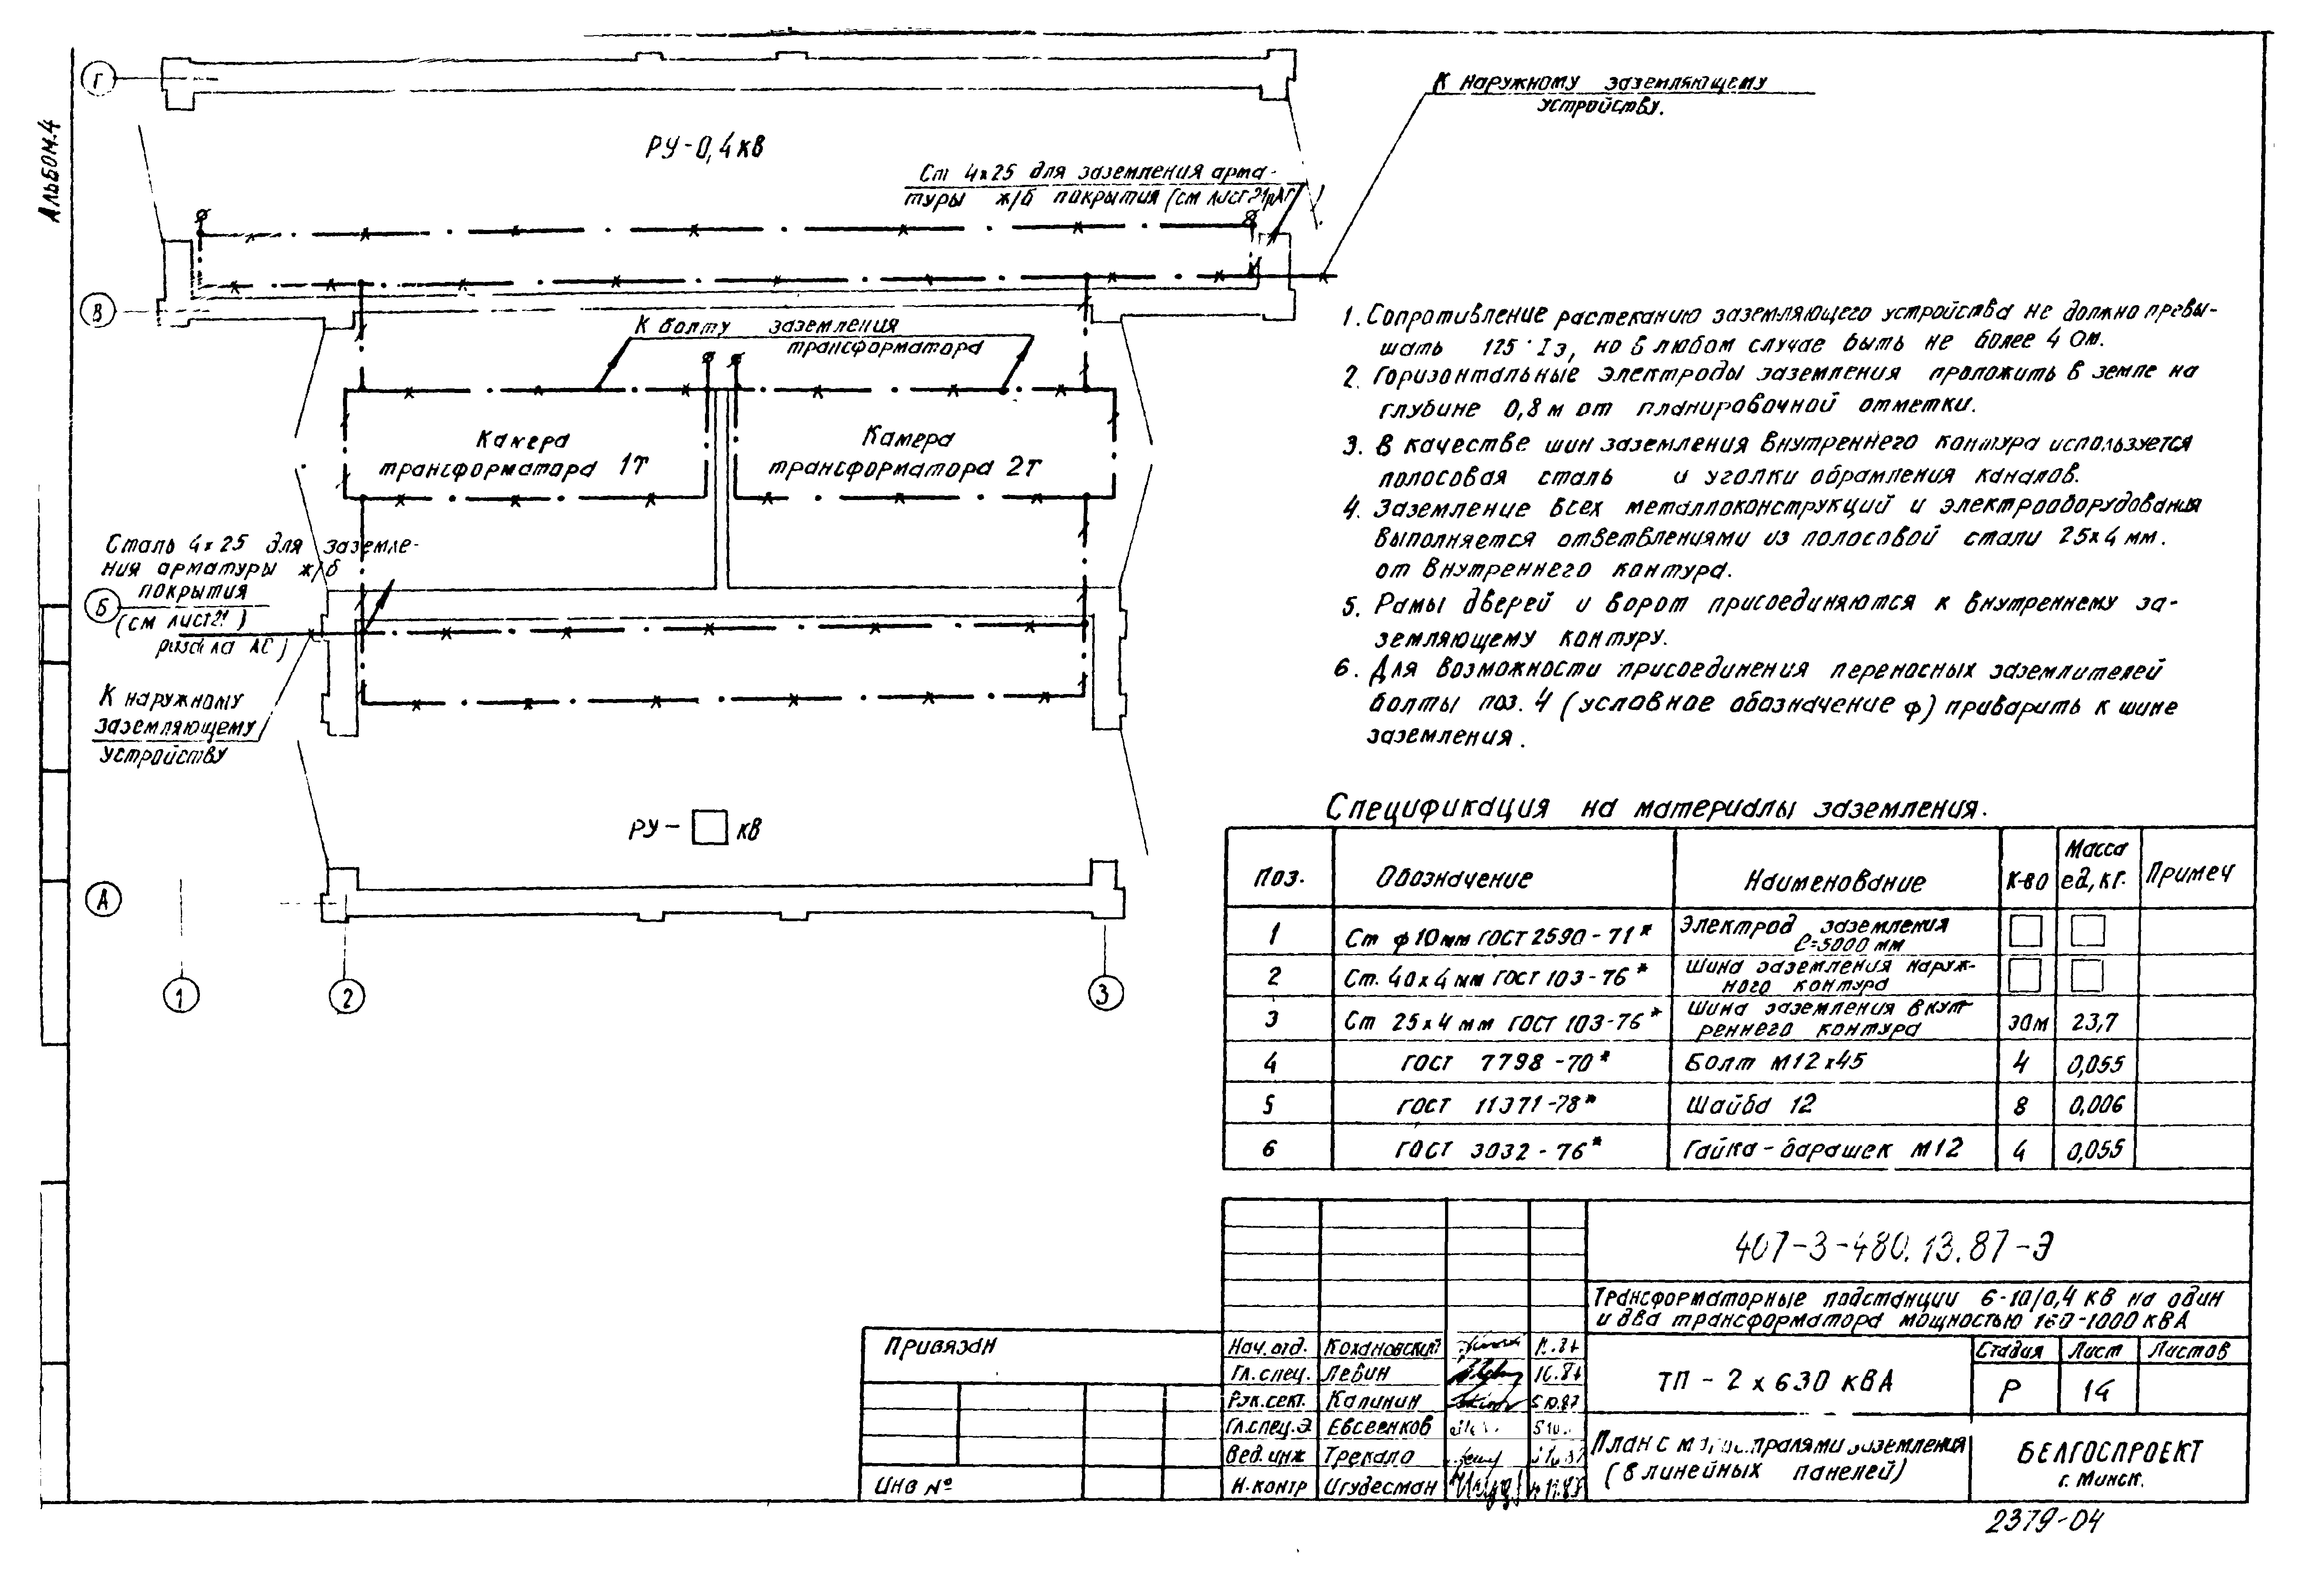 Альбом.4
Г
К наружному заземляющему
устройству.
РУ-0,4кВ
Ст 4х25 для заземления арма-
туры ж/б покрытия (см лист 21
В
К болту заземления
трансформатора
Камера
трансформатора 1Т
Камера
трансформатора 2Т
Сталь 4х25 для заземле-
ния арматуры ж/б
покрытия
(см лист 21
раздела АС)
Б
К наружному
заземляющему
устройству
РУ-□ кВ
А
1
2
3
1. Сопротивление растеканию заземляющего устройства не должно превы-
шать 125·Iз, но в любом случае быть не более 4 Ом.
2. Горизонтальные электроды заземления проложить в земле на
глубине 0,8м от планировочной отметки.
3. В качестве шин заземления внутреннего контура используется
полосовая сталь и уголки обрамления каналов.
4. Заземление всех металлоконструкций и электрооборудования
выполняется ответвлениями из полосовой стали 25х4 мм.
от внутреннего контура.
5. Рамы дверей и ворот присоединяются к внутреннему за-
земляющему контуру.
6. Для возможности присоединения переносных заземлителей
болты поз. 4 (условное обозначение φ) приварить к шине
заземления.
Спецификация на материалы заземления.
Поз. Обозначение Наименование К-во Масса ед, кг. Примеч
1 Ст φ10мм ГОСТ 2590-71* Электрод заземления ℓ=5000 мм □ □
2 Ст. 40х4 мм ГОСТ 103-76* Шина заземления наруж-ного контура □ □
3 Ст 25х4 мм ГОСТ 103-76* Шина заземления внут-реннего контура 30м 23,7
4 ГОСТ 7798-70* Болт М12х45 4 0,055
5 ГОСТ 11371-78* Шайба 12 8 0,006
6 ГОСТ 3032-76* Гайка-барашек М12 4 0,055
407-3-480.13.87-Э
Трансформаторные подстанции 6-10/0,4 кВ на один
и два трансформатора мощностью 160-1000 кВА
Привязан
Инв №
Нач. отд. Кохановский
Гл. спец. Левин
Рук. сект. Калинин
Гл.спец.Э Евсеенков
Вед. инж Трекало
Н. контр Игудесман
ТП - 2 х 630 кВА
Стадия Лист Листов
Р 14
План с магистралями заземления
(8 линейных панелей)
БЕЛГОСПРОЕКТ
г. Минск.
2379-04